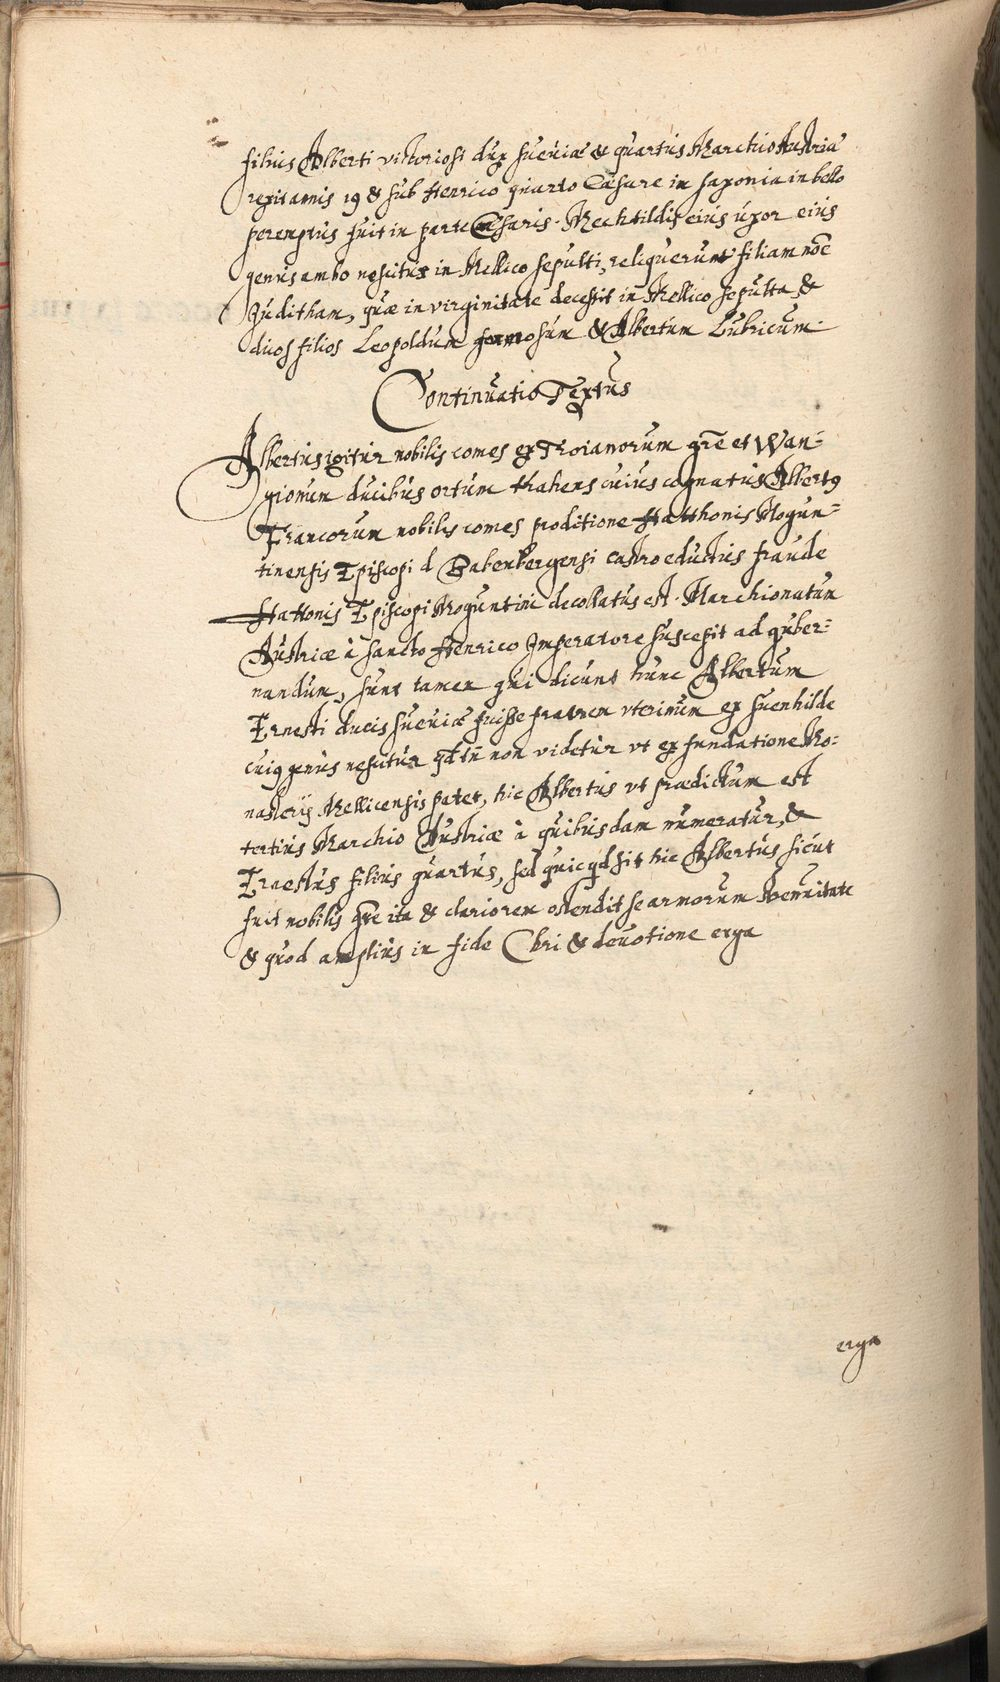 filius Alberti victoriosi dux sueviæ & quartus Marchio Austriæ
rexit annis 19 & sub Henrico quarto Cæsare in saxonia in bello
peremptus fuit in parte Cæsaris. Mechtildis eius uxor eius
genus ambo nescitur in Mellico sepulti, reliquerunt filiam noē
Juditham, quæ in virginitate decessit in Mellico sepulta &
duos filios Leopoldum formosum & Albertum Lubricum.
Continuatio Textus
Albertus igitur nobilis comes ex Troianorum grē et Wan-
gionum ducibus ortum trahens cuius cognatus Albertꝰ
Francorum nobilis comes proditione Hatthonis Mogun-
tinensis Episcopi d Babenbergensi castro eductus fraude
Hattonis Episcopi Moguntini decollatus est. Marchionatum
Austriæ à sancto Henrico Imperatore suscepit ad guber-
nandum, sunt tamen qui dicunt hunc Albertum
Ernesti ducis sueviæ fuisse fratrem uterinum ex suenhilde
cuiꝰ genus nescitur qd tn̄ non videtur ut ex fundatione Mo-
nasterij Mellicensis patet, hic Albertus ut prædictum est
tertius Marchio Austriæ à quibusdam numeratur, &
Ernestus filius quartus, sed quicqd sit hic Albertus sicut
fuit nobilis grē ita & clariorem ostendit se armorum strenuitate
& quod amplius in fide Chri & devotione erga
erga